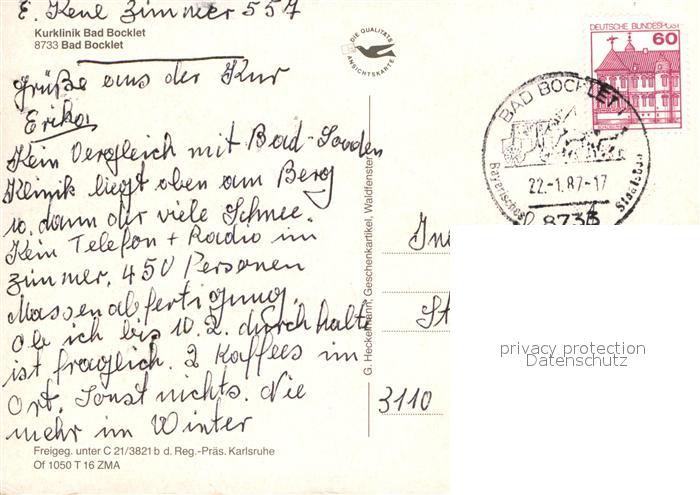 E. Keul Zimmer 557
Kurklinik Bad Bocklet
8733 Bad Bocklet
Grüße aus der Kur
Erika
Kein Vergleich mit Bad-Sooden
Klinik liegt oben am Berg
u. dann der viele Schnee.
Kein Telefon + Radio im
Zimmer. 450 Personen
Massenabfertigung.
Ob ich bis 10.2. durchhalte
ist fraglich. 2 Kaffees im
Ort. Sonst nichts. Nie
mehr im Winter
Freigeg. unter C 21/3821 b d. Reg.-Präs. Karlsruhe
Of 1050 T 16 ZMA
DIE QUALITÄTS
ANSICHTSKARTE
G. Heckelmann, Geschenkartikel, Waldfenster
DEUTSCHE BUNDESPOST
60
BAD BOCKLET
22.-1.87-17
Bayerisches Staatsbad
8733
In
St
3110
privacy protection
Datenschutz